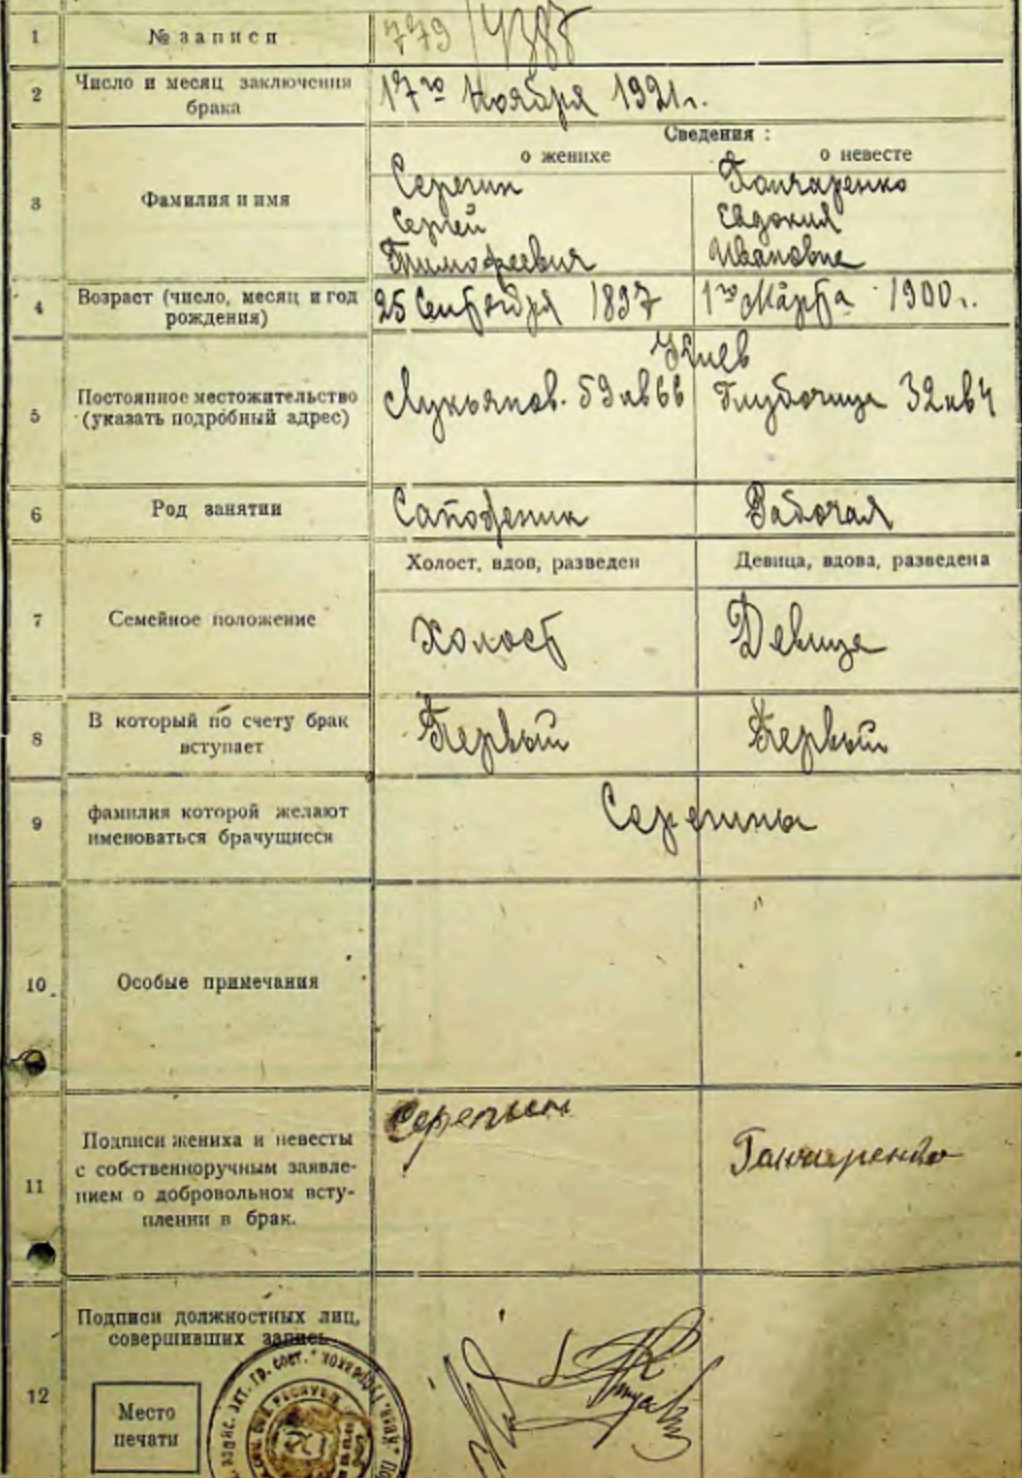 1 № записи 779
2 Число и месяц заключения брака 17го Ноября 1921г.
Сведения :
о женихе о невесте
3 Фамилия и имя
Серегин Гончаренко
Сергей Евдокия
Тимофеевич Ивановне
4 Возраст (число, месяц и год рождения) 25 Сентября 1897 1го Марта 1900г.
Киев
5 Постоянное местожительство (указать подробный адрес) Лукьянов. 59 кв 66 Глубочице 32 кв 4
6 Род занятии Сапожник Рабочая
Холост, вдов, разведен Девица, вдова, разведена
7 Семейное положение Холост Девице
8 В который по счету брак вступает Первый Первый
9 фамилия которой желают именоваться брачущиеся Серегины
10 Особые примечания
11 Подписи жениха и невесты
с собственноручным заявле-
нием о добровольном всту-
плении в брак.
Серегин
Гончаренко
12 Подписи должностных лиц,
совершивших запись
Место
печати